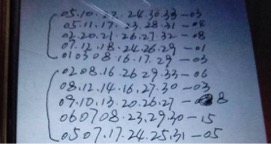 05.10.22.24.30.33-03
05.11.17.23.28.31-08
02.20.21.26.27.32-08
07.12.18.24.26.29-01
01 03 08.16.17.29-03
02.08.16.26.29.33-06
08.12.14.16.27.30-03
09.10.13.20.26.27-8
06 07 08.23.29.30-15
05 07.17.24.25.31-05